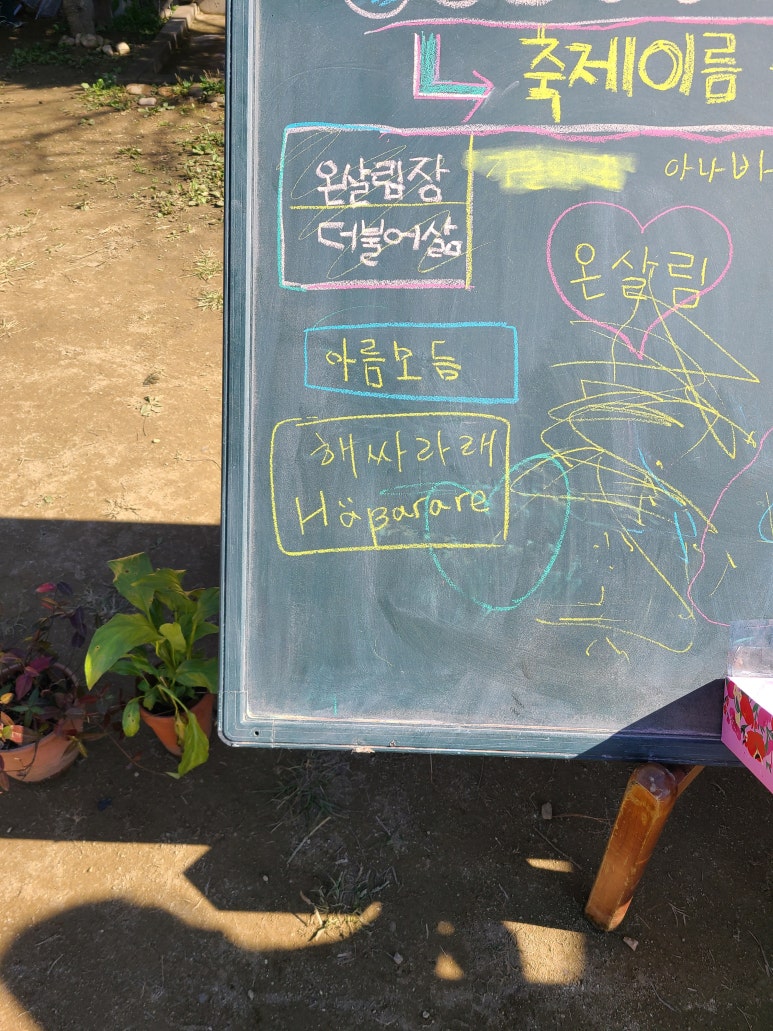 축제이름
온살림장
아나바
더불어삶
온살림
아름모듬
해싸라래
Häparare